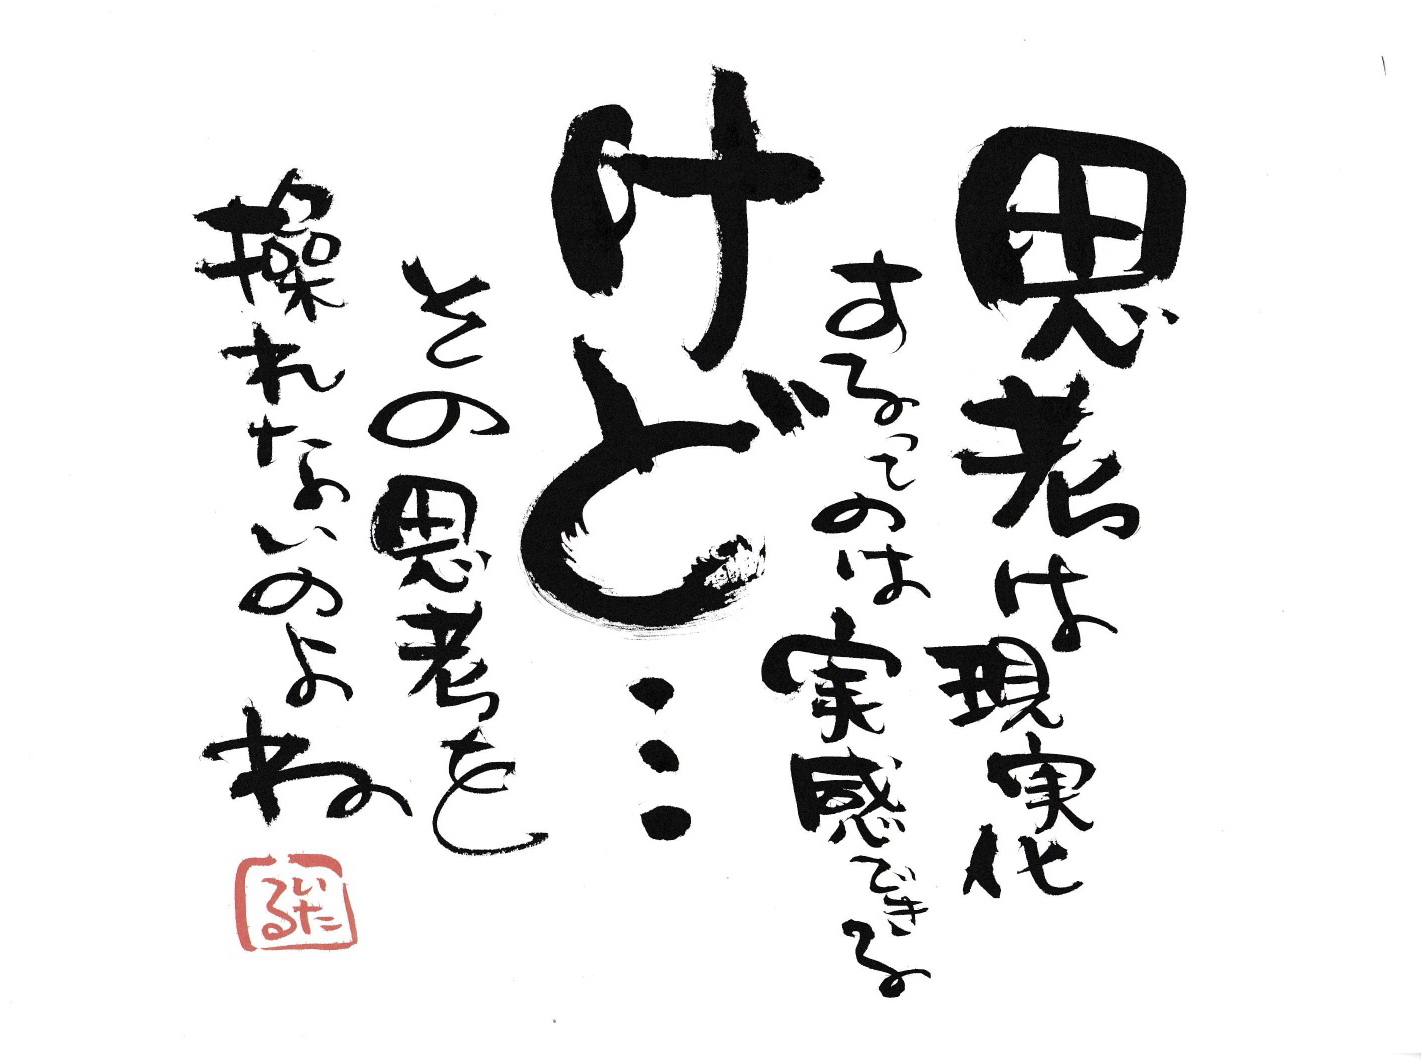 思考は現実化
するってのは実感できる
けど…
その思考を
操れないのよね
いたる